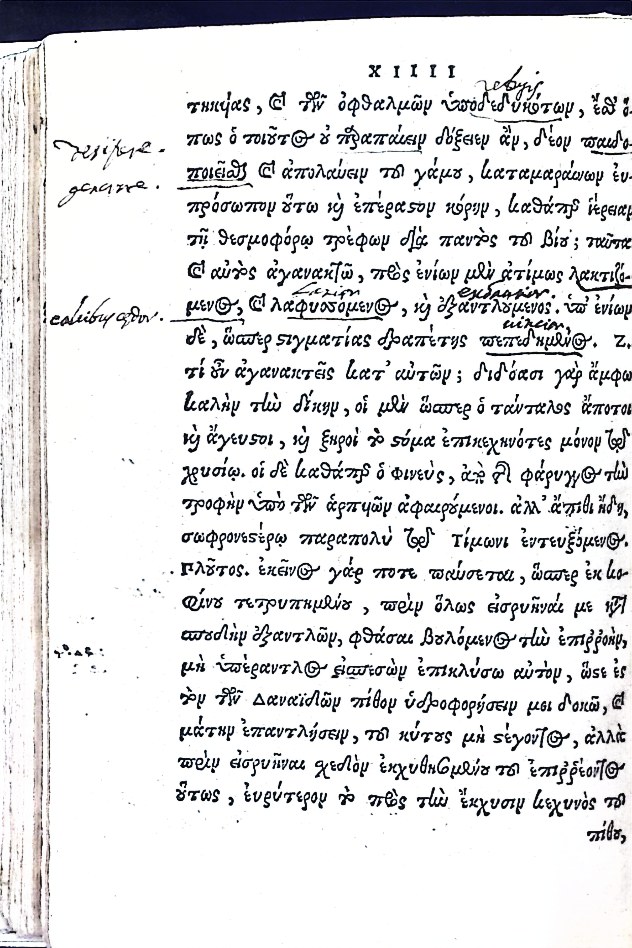 XIIII
τηκότας, καὶ τῶν ὀφθαλμῶν ὑποδεδυκότων, ἔσθ' ὅ-
πως ὁ τοιοῦτος οὐ παραπαίειν δόξειεν ἂν, δέον παιδο-
ποιεῖσθαι καὶ ἀπολαύειν τοῦ γάμου, καταμαραίνων εὐ-
πρόσωπον οὕτω καὶ ἐπέραστον κόρην, καθάπερ ἱέρειαν
desipere.
generare.
τῇ θεσμοφόρῳ τρέφων διὰ παντὸς τοῦ βίου; ταῦτα
καὶ αὐτὸς ἀγανακτῶ, πρὸς ἐνίων μὲν ἀτίμως λακτιζό-
μενος, καὶ λαφυσσόμενος, καὶ ἐξαντλούμενος. ὑπ' ἐνίων
δὲ, ὥσπερ στιγματίας δραπέτης πεπεδημένος. Ζ.
τί οὖν ἀγανακτεῖς κατ' αὐτῶν; διδόασι γὰρ ἄμφω
καλὴν τὴν δίκην, οἱ μὲν ὥσπερ ὁ τάνταλος ἄποτοι
καὶ ἄγευστοι, καὶ ξηροὶ τὸ στόμα ἐπικεχηνότες μόνον τῷ
χρυσίῳ. οἱ δὲ καθάπερ ὁ φινεὺς, ἀπὸ τῆς φάρυγγος τὴν
τροφὴν ὑπὸ τῶν ἁρπυιῶν ἀφαιρούμενοι. ἀλλ' ἄπιθι ἤδη,
σωφρονεστέρῳ παραπολὺ τῷ Τίμωνι ἐντευξόμενος.
Πλοῦτος. ἐκεῖνος γάρ ποτε παύσεται, ὥσπερ ἐκ κο-
φίνου τετρυπημένου, πρὶν ὅλως εἰσρυῆναί με κατὰ
σπουδὴν ἐξαντλῶν, φθάσαι βουλόμενος τὴν ἐπιρροὴν,
μὴ ὑπέραντλος εἰσπεσὼν ἐπικλύσω αὐτὸν, ὥστε ἐς
τὸν τῶν Δαναΐδων πίθον ὑδροφορήσειν μοι δοκῶ, καὶ
μάτην ἐπαντλήσειν, τοῦ κύτους μὴ στέγοντος, ἀλλὰ
πρὶν εἰσρυῆναι σχεδὸν ἐκχυθησομένου τοῦ ἐπιρρέοντος
οὕτως, εὐρύτερον τὸ πρὸς τὴν ἔκχυσιν κεχηνὸς τοῦ
πίθου,